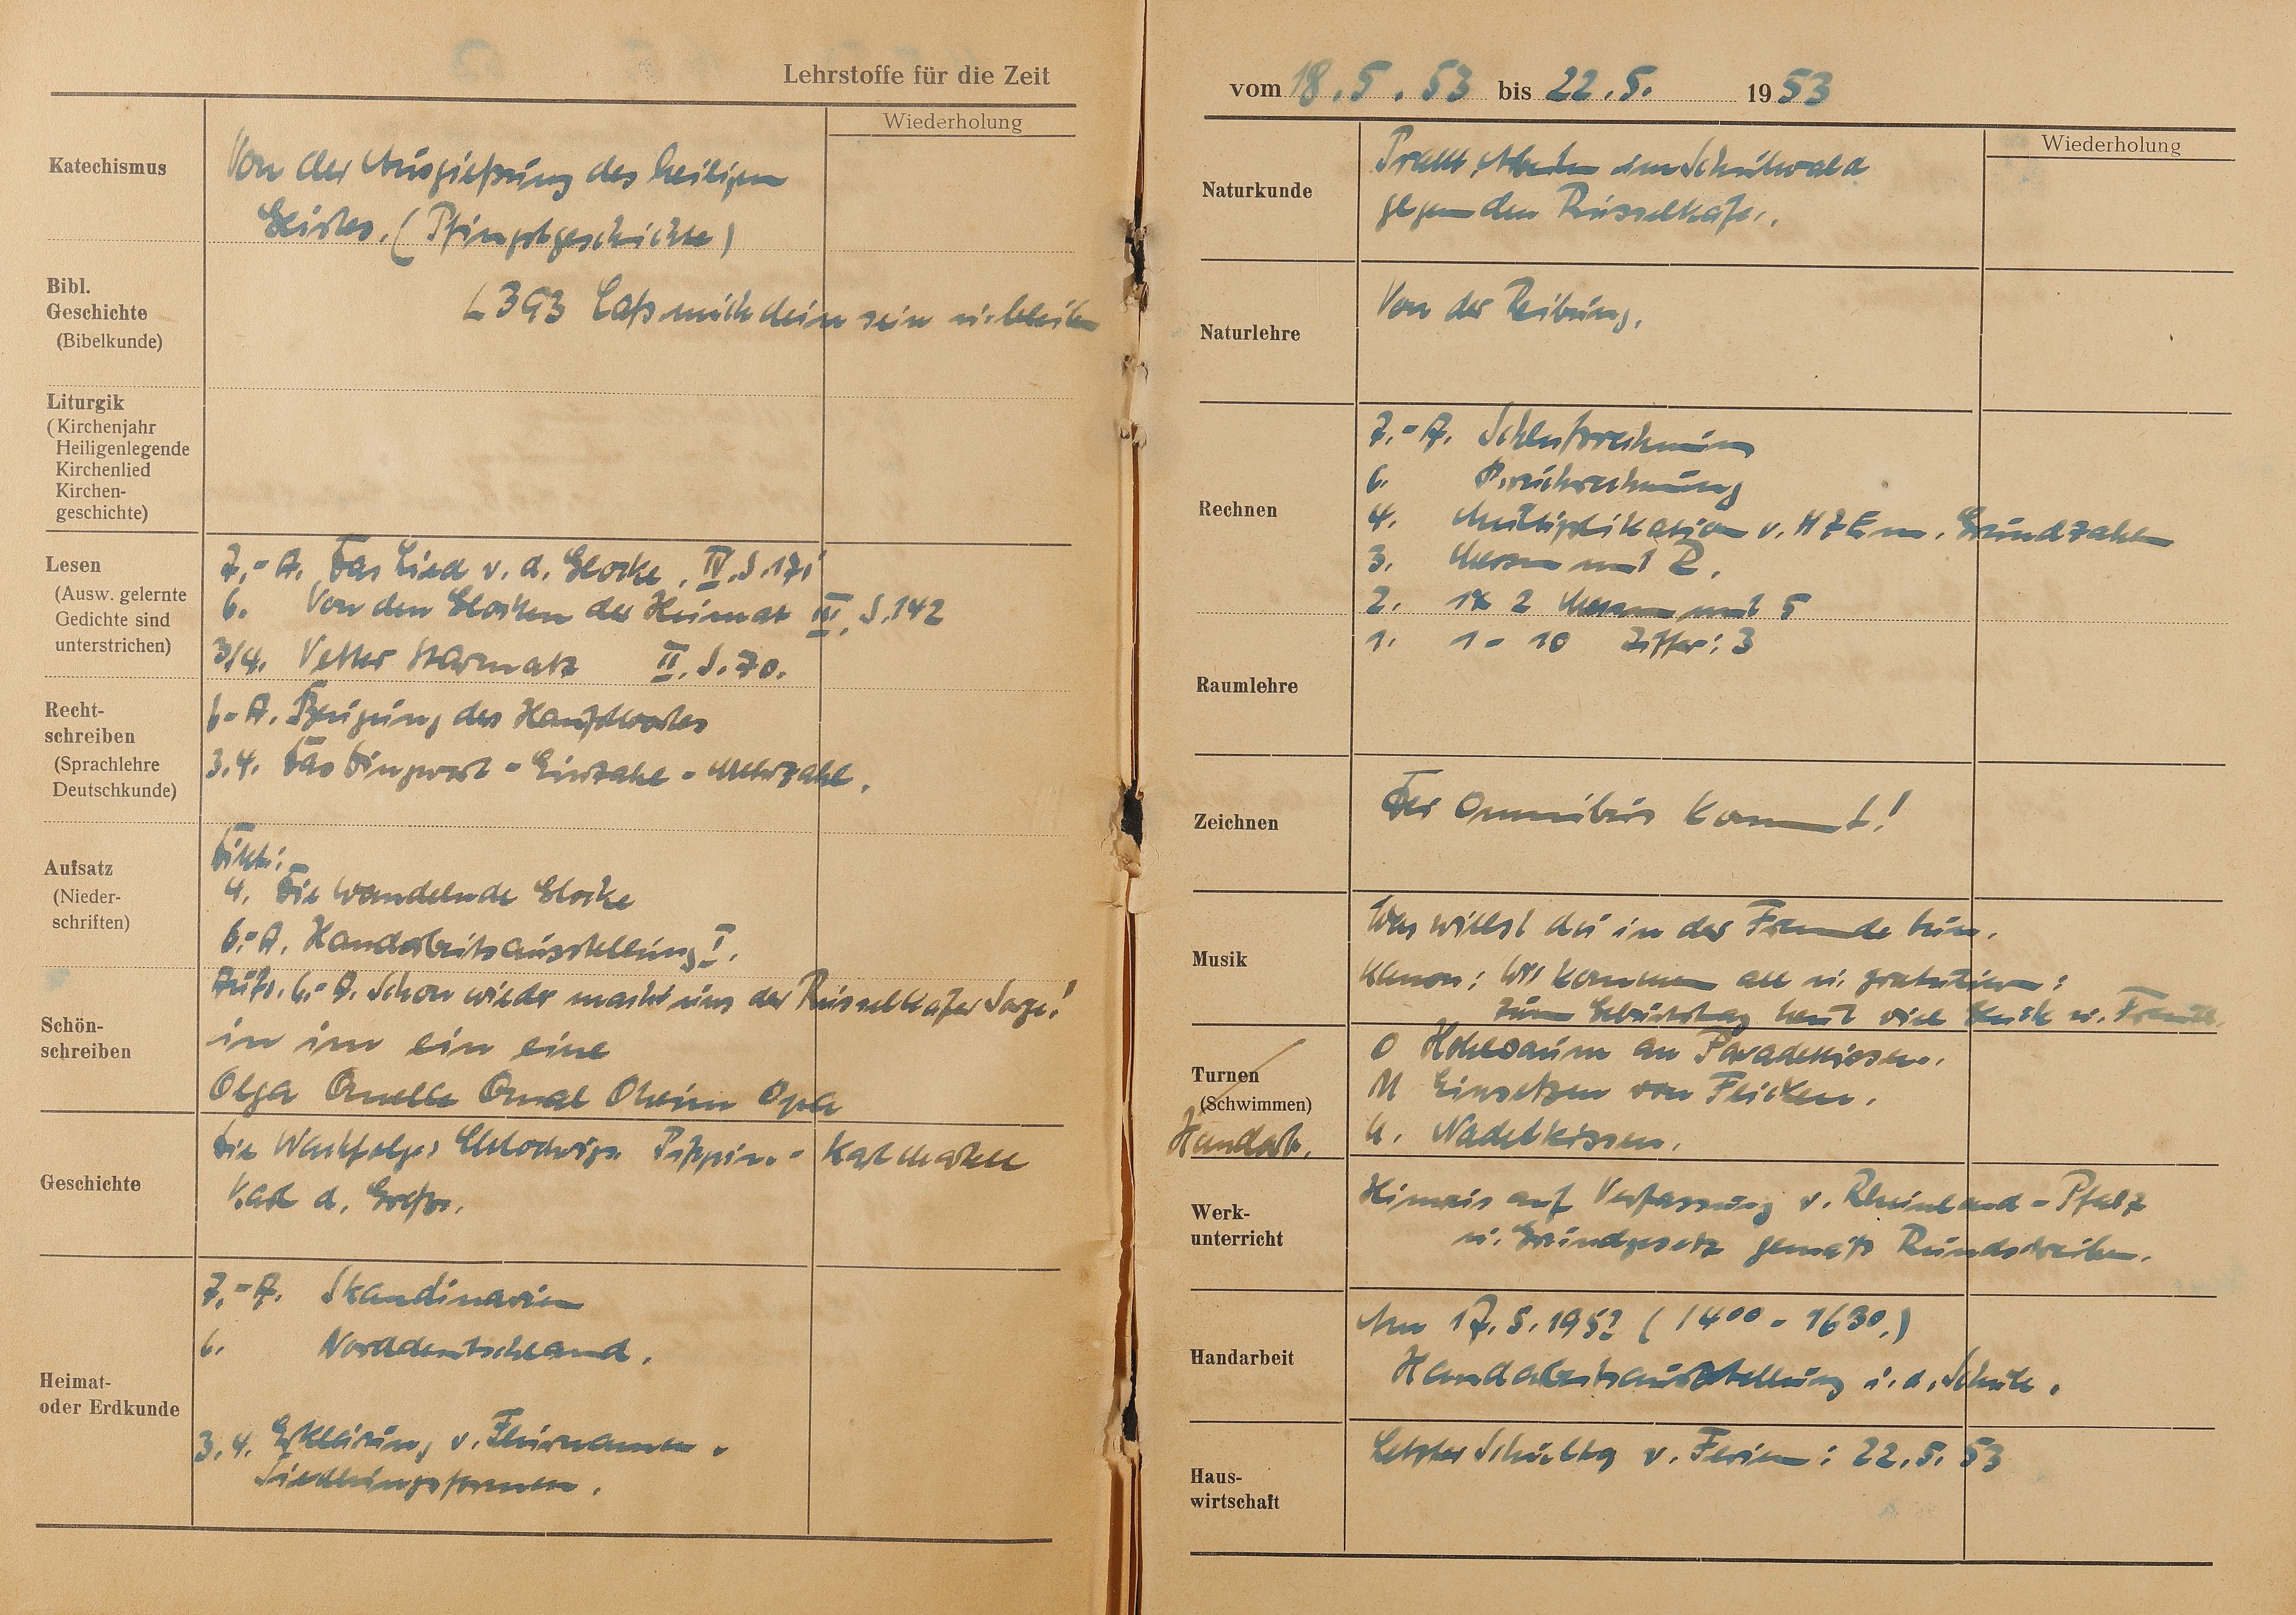 Lehrstoffe für die Zeit
Wiederholung
Katechismus
Von der Ausgießung des heiligen
Geistes. (Pfingstgeschichte)
Bibl.
Geschichte
(Bibelkunde)
L 393 Laß mich dein sein u. bleiben
Liturgik
(Kirchenjahr
Heiligenlegende
Kirchenlied
Kirchen-
geschichte)
Lesen
(Ausw. gelernte
Gedichte sind
unterstrichen)
7.-8. Das Lied v. d. Glocke. IV. S. 171
6. Von den Glocken der Heimat III, S. 142
3/4. Vetter Starmatz II. S. 70.
Recht-
schreiben
(Sprachlehre
Deutschkunde)
6-8. Beugung des Hauptwortes
3.4. Das Dingwort - Einzahl - Mehrzahl.
Aufsatz
(Nieder-
schriften)
Dikt:
4. Die wandelnde Glocke
6.-8. Handarbeitsausstellung I.
Aufs. 6.-8. Schon wieder macht uns der Rüsselkäfer Sorge!
Schön-
schreiben
in im ein eine
Olga Omal Oheim Opa
Geschichte
Die Nachfolger Chlodwigs Pippin. - Karl Martell
Karl d. Große.
Heimat-
oder Erdkunde
7.-8. Skandinavien
6. Norddeutschland.
3.4. Erklärung v. Flurnamen.
Siedlungsformen.
vom 18.5.53 bis 22.5. 1953
Wiederholung
Naturkunde
Prakt. Arbeiten im Schulwald
gegen den Rüsselkäfer.
Naturlehre
Von der Reibung.
Rechnen
7.-8. Schlußrechnung
6. Bruchrechnung
4. Multiplikation v. H Z E m. Grundzahlen
3. Messen mit 2.
2. 1x 2 Messen mit 5
1. 1-10 Ziffer: 3
Raumlehre
Zeichnen
Der Omnibus kommt!
Musik
Was willst du in der Fremde tun.
Kanon: Wir kommen all u. gratulieren:
zum Geburtstag heut viel Glück u. Freude.
Turnen
(Schwimmen)
Handarb.
O Hohlsaum an Paradekissen.
M Einsetzen von Flicken.
U. Nadelkissen.
Werk-
unterricht
Hinweis auf Verfassung v. Rheinland-Pfalz
u. Grundgesetz gemäß Rundschreiben.
Handarbeit
Am 17.5.1953 (1400-1630.)
Handarbeitsausstellung i. d. Schule.
Haus-
wirtschaft
Letzter Schultag v. Ferien: 22.5.53